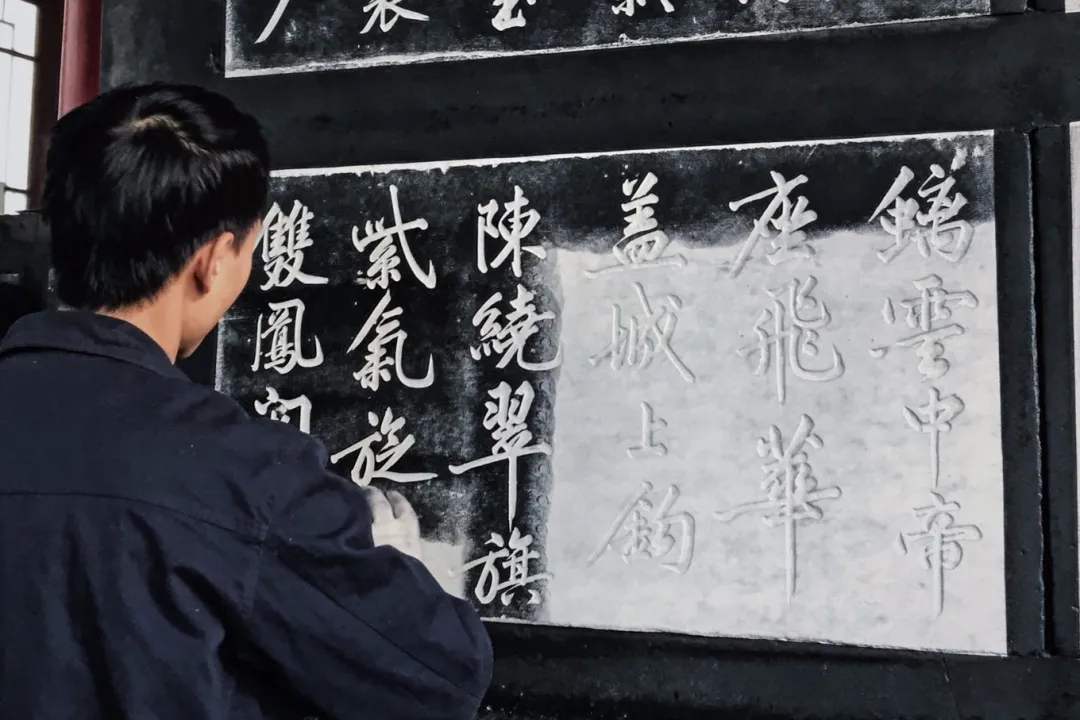 螭雲中帝
座飛華
盖城上鈎
陳繞翠旗
紫氣旋
雙鳳